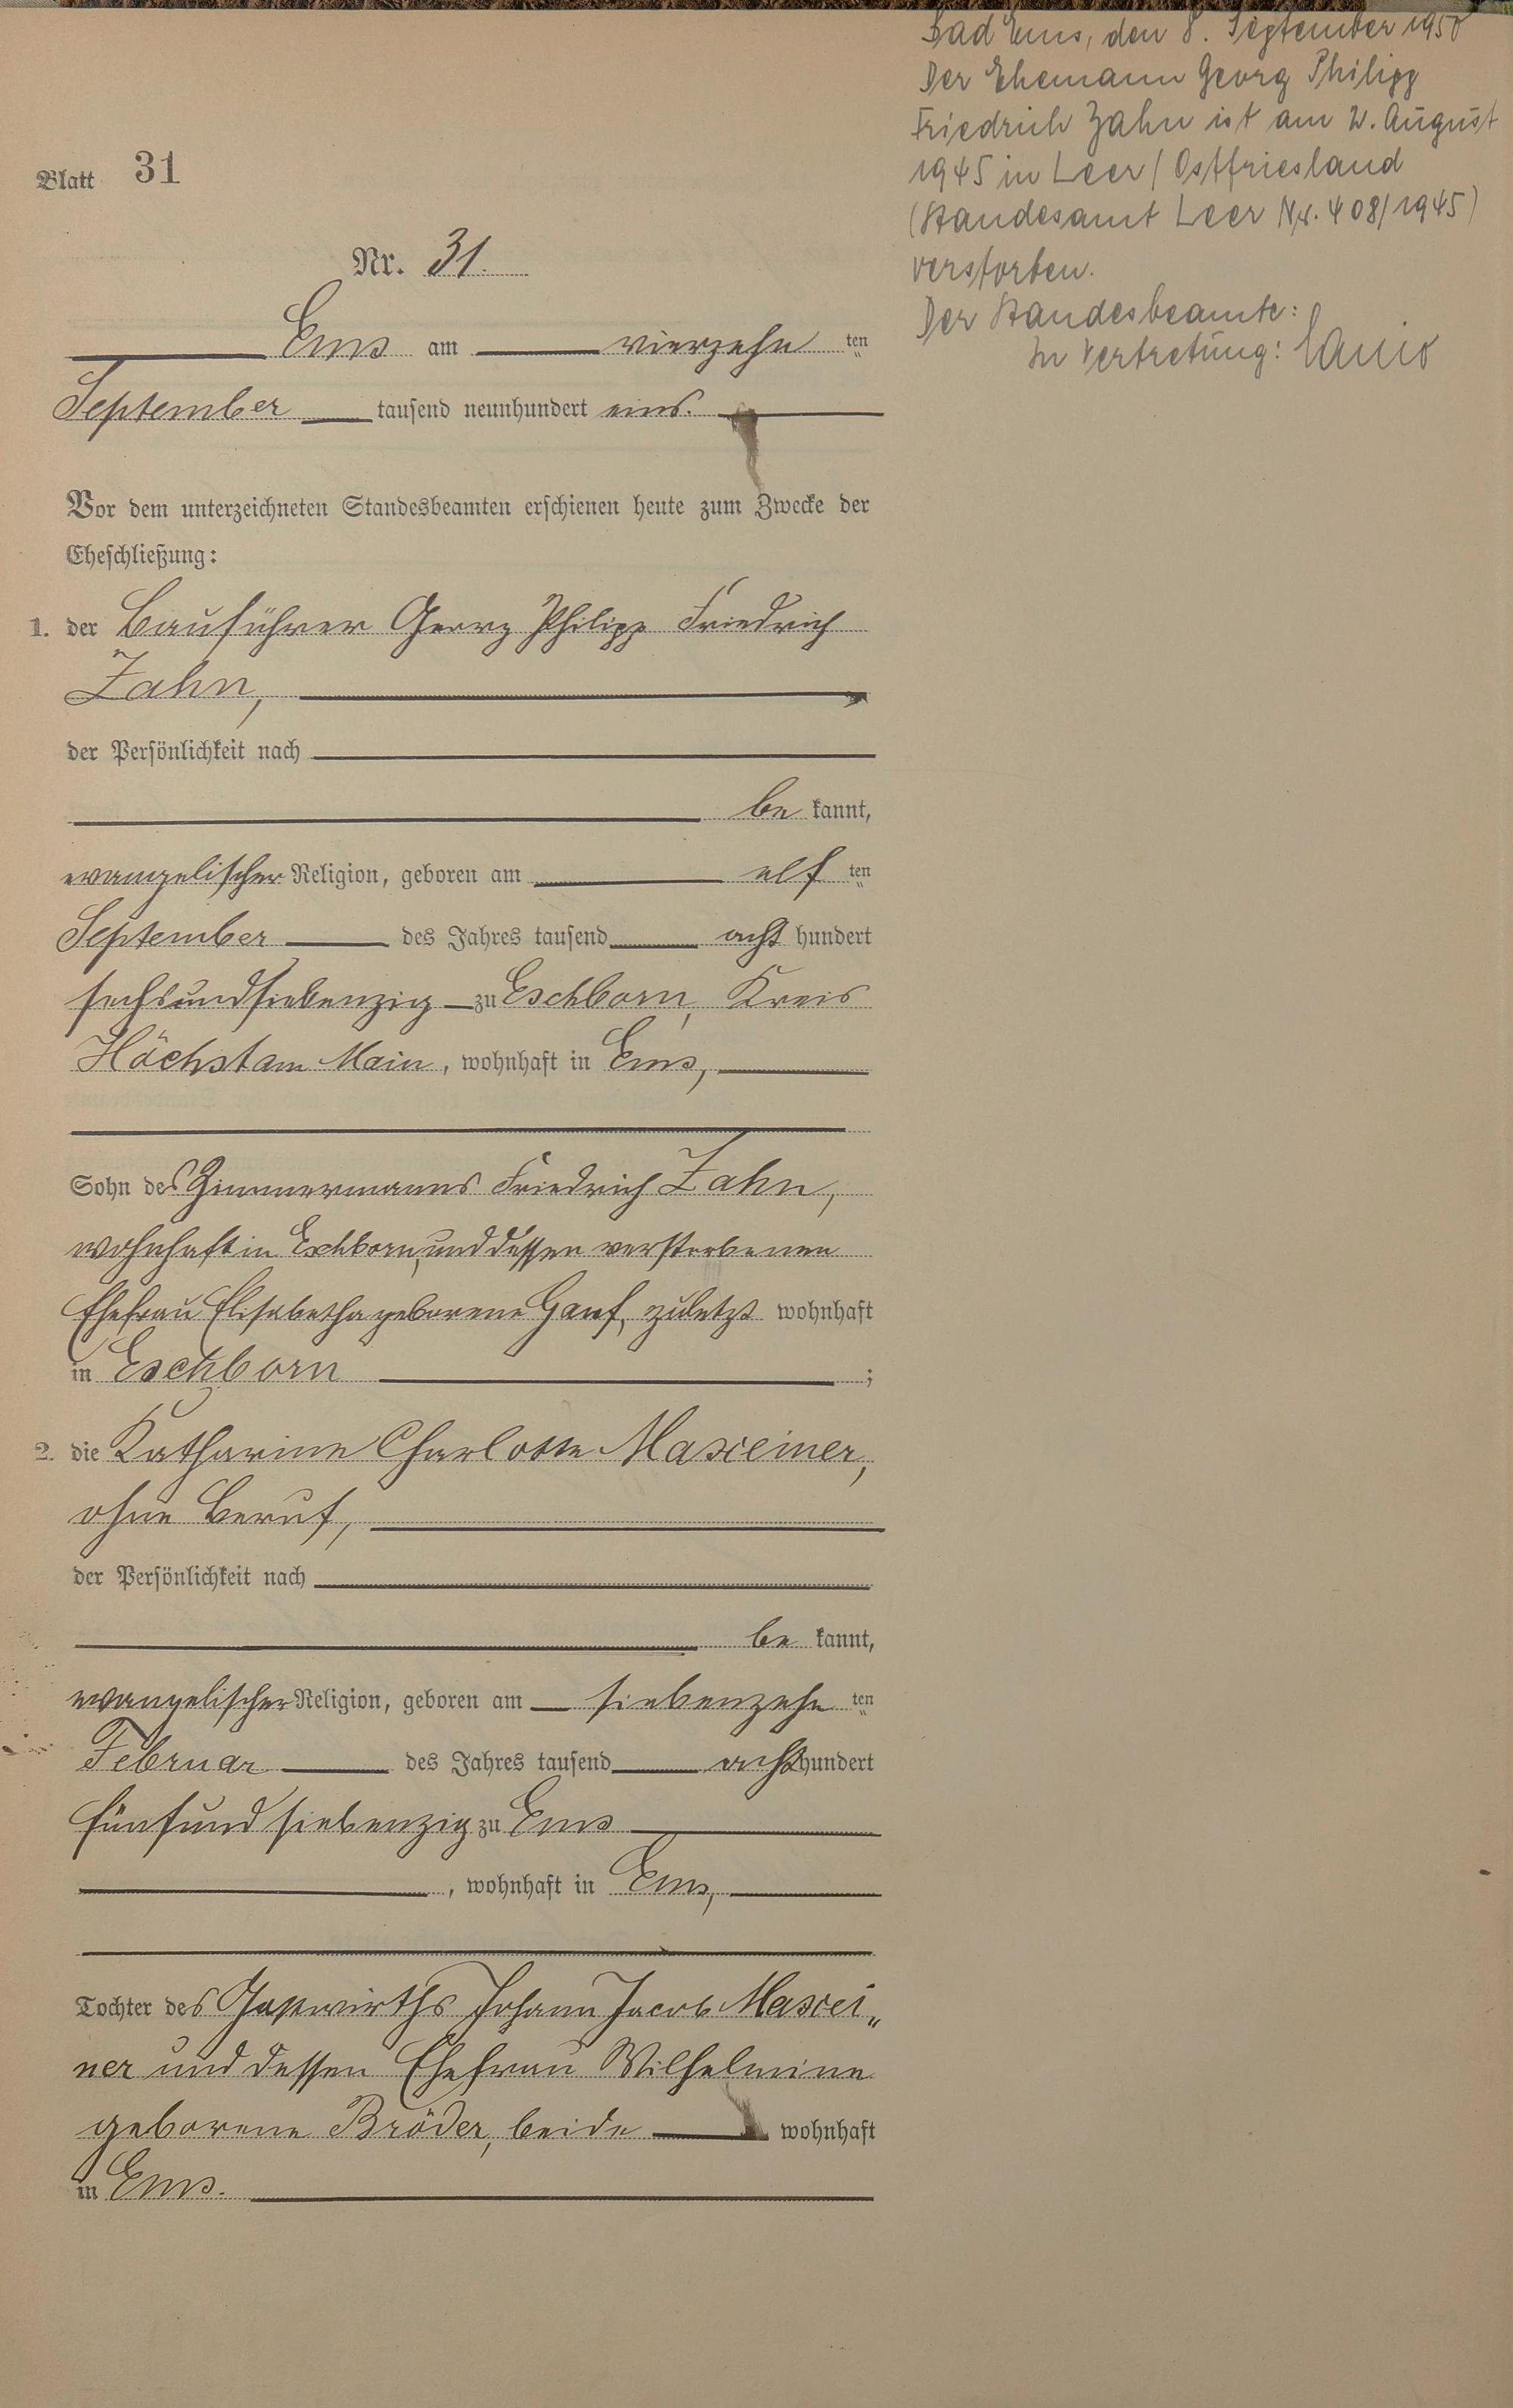 Bad Ems, den 8. September 1950
Der Ehemann Georg Philipp
Friedrich Zahn ist am 2. August
1945 in Leer / Ostfriesland
(Standesamt Leer Nr. 408/1945)
verstorben.
Der Standesbeamte:
In Vertretung:
Blatt 31
Nr. 31.
Ems am vierzehn ten
September tausend neunhundert eins.
Vor dem unterzeichneten Standesbeamten erschienen heute zum Zwecke der
Eheschließung:
1. der Bauführer Georg Philipp Friedrich
Zahn,
der Persönlichkeit nach
be kannt,
evangelischer Religion, geboren am elf ten
September des Jahres tausend acht hundert
sechsundsiebenzig zu Eschborn, Kreis
Höchst am Main, wohnhaft in Ems,
Sohn des Zimmermanns Friedrich Zahn,
wohnhaft in Eschborn, und dessen verstorbenen
Ehefrau Elisabetha geborene zuletzt wohnhaft
in Eschborn ;
2. die Katharine Charlotte Maxeiner,
ohne Beruf,
der Persönlichkeit nach
be kannt,
evangelischer Religion, geboren am siebenzehn ten
Februar des Jahres tausend acht hundert
fünfundsiebenzig zu Ems
, wohnhaft in Ems,
Tochter des Gastwirths Johann Jacob Maxei„
ner und dessen Ehefrau Wilhelmine
geborene Bröder, beide wohnhaft
in Ems.